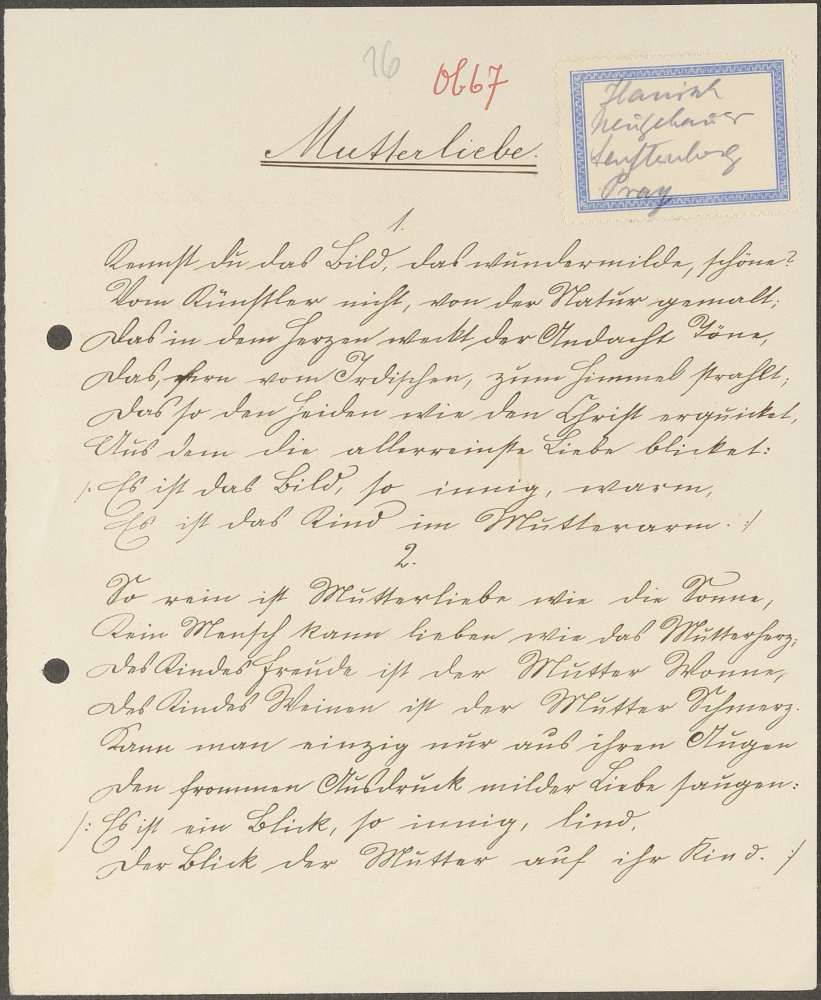 16
Ob67
Hanisch
Neugebauer
Senftenberg
Prag
Mutterliebe.
1.
Kennst du das Bild, das wundermilde, schöne?
Vom Künstler nicht, von der Natur gemalt;
Das in dem Herzen weckt der Andacht Töne,
Das, fern vom Irdischen, zum Himmel strahlt;
Das so den Heiden wie den Christ erquicket,
Aus dem die allerreinste Liebe blicket:
/: Es ist das Bild, so innig, warm,
Es ist das Kind im Mutterarm. :/
2.
So rein ist Mutterliebe wie die Sonne,
Kein Mensch kann lieben wie das Mutterherz;
Des Kindes Freude ist der Mutter Wonne,
Des Kindes Weinen ist der Mutter Schmerz.
Kann man einzig nur aus ihren Augen
Den frommen Ausdruck milder Liebe saugen:
/: Es ist ein Blick, so innig, lind,
Der Blick der Mutter auf ihr Kind. :/